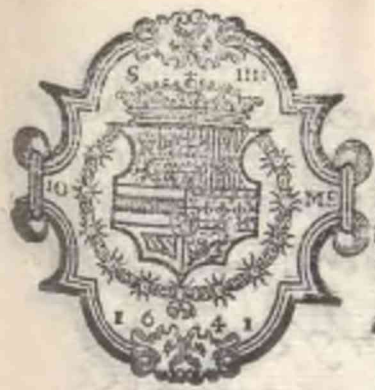 S IIII
10 Mˢ
1641